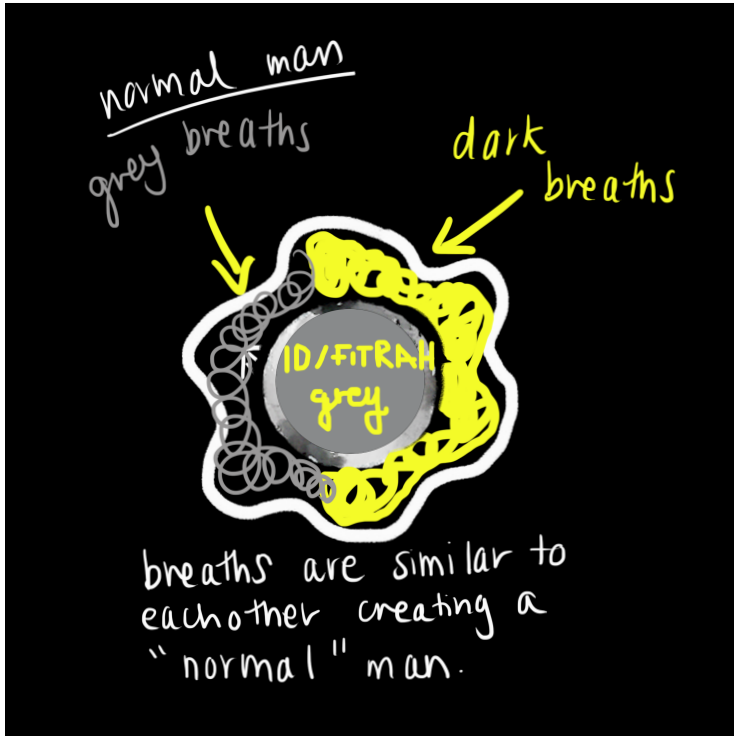 normal man
grey breaths
dark
breaths
ID/FiTRAH
grey
breaths are similar to
eachother creating a
"normal" man.